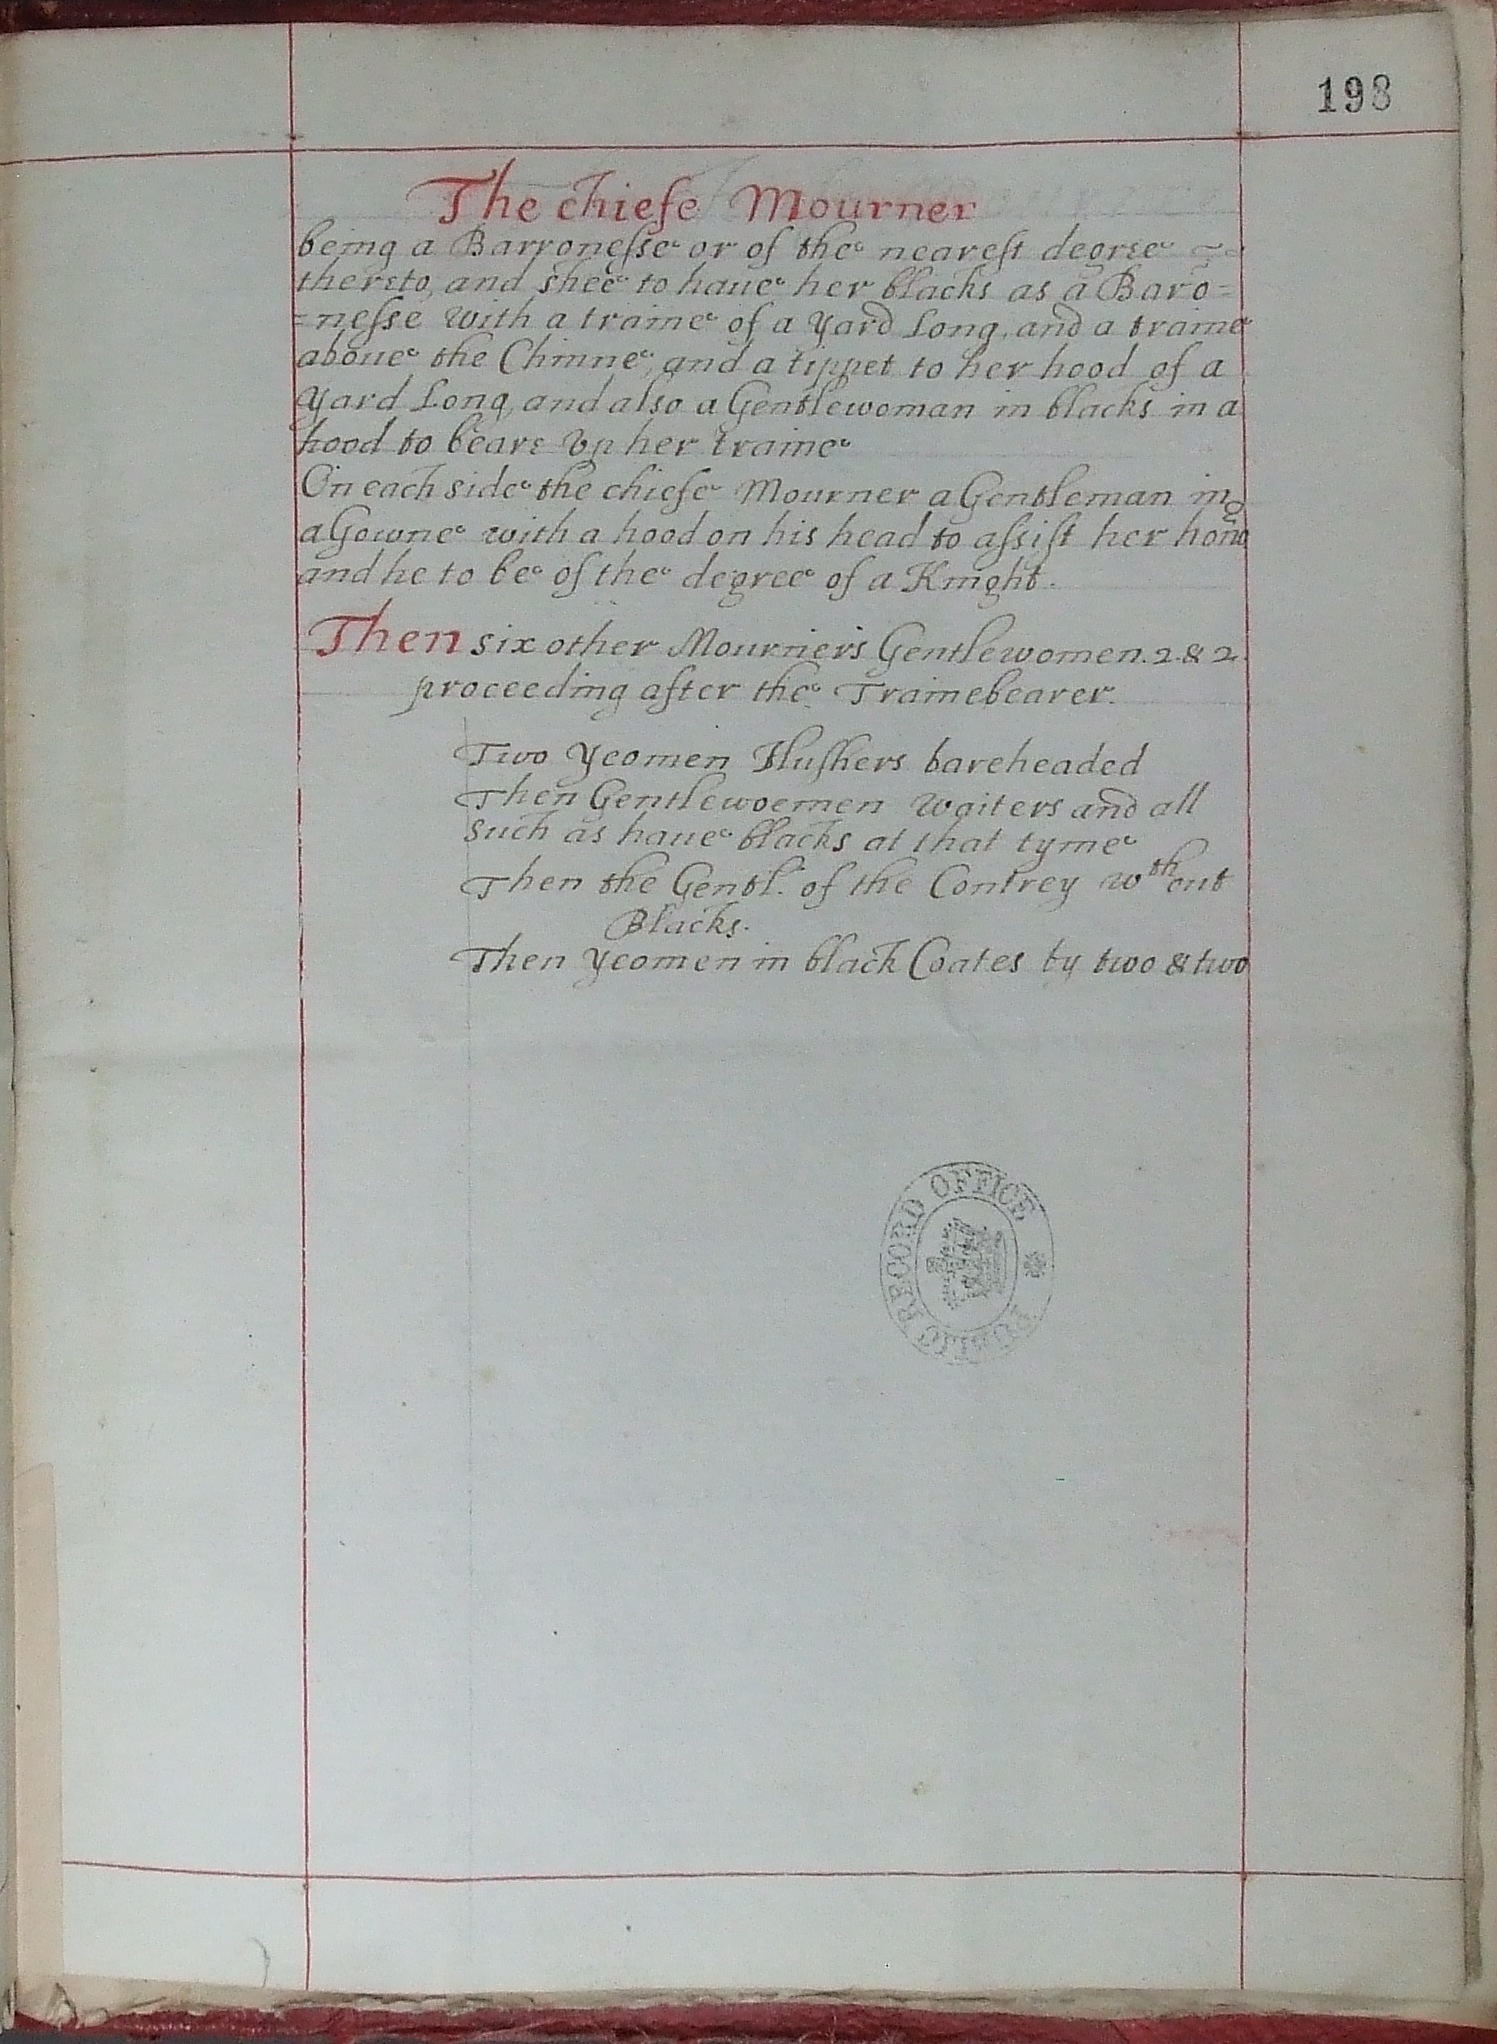 198
The chiefe Mourner
being a Barronesse or of the nearest degree ~
thereto, and shee to haue her blacks as a Baro=
=nesse with a traine of a yard Long, and a traine
aboue the Chinne, and a tippet to her hood of a
yard Long, and also a Gentlewoman in blacks in a
hood to beare vp her traine
On each side the chiefe Mourner a Gentleman in
a Gowne with a hood on his head to assist her hono
and he to be of the degree of a Knight.
Then six other Mourners Gentlewomen. 2. & 2.
proceeding after the Trainebearer.
Two yeomen Hushers bareheaded
Then Gentlewoemen waiters and all
such as haue blacks at that tyme
Then the Gentl. of the Contrey wthout
Blacks.
Then yeomen in black Coates by two & two
PUBLIC RECORD OFFICE